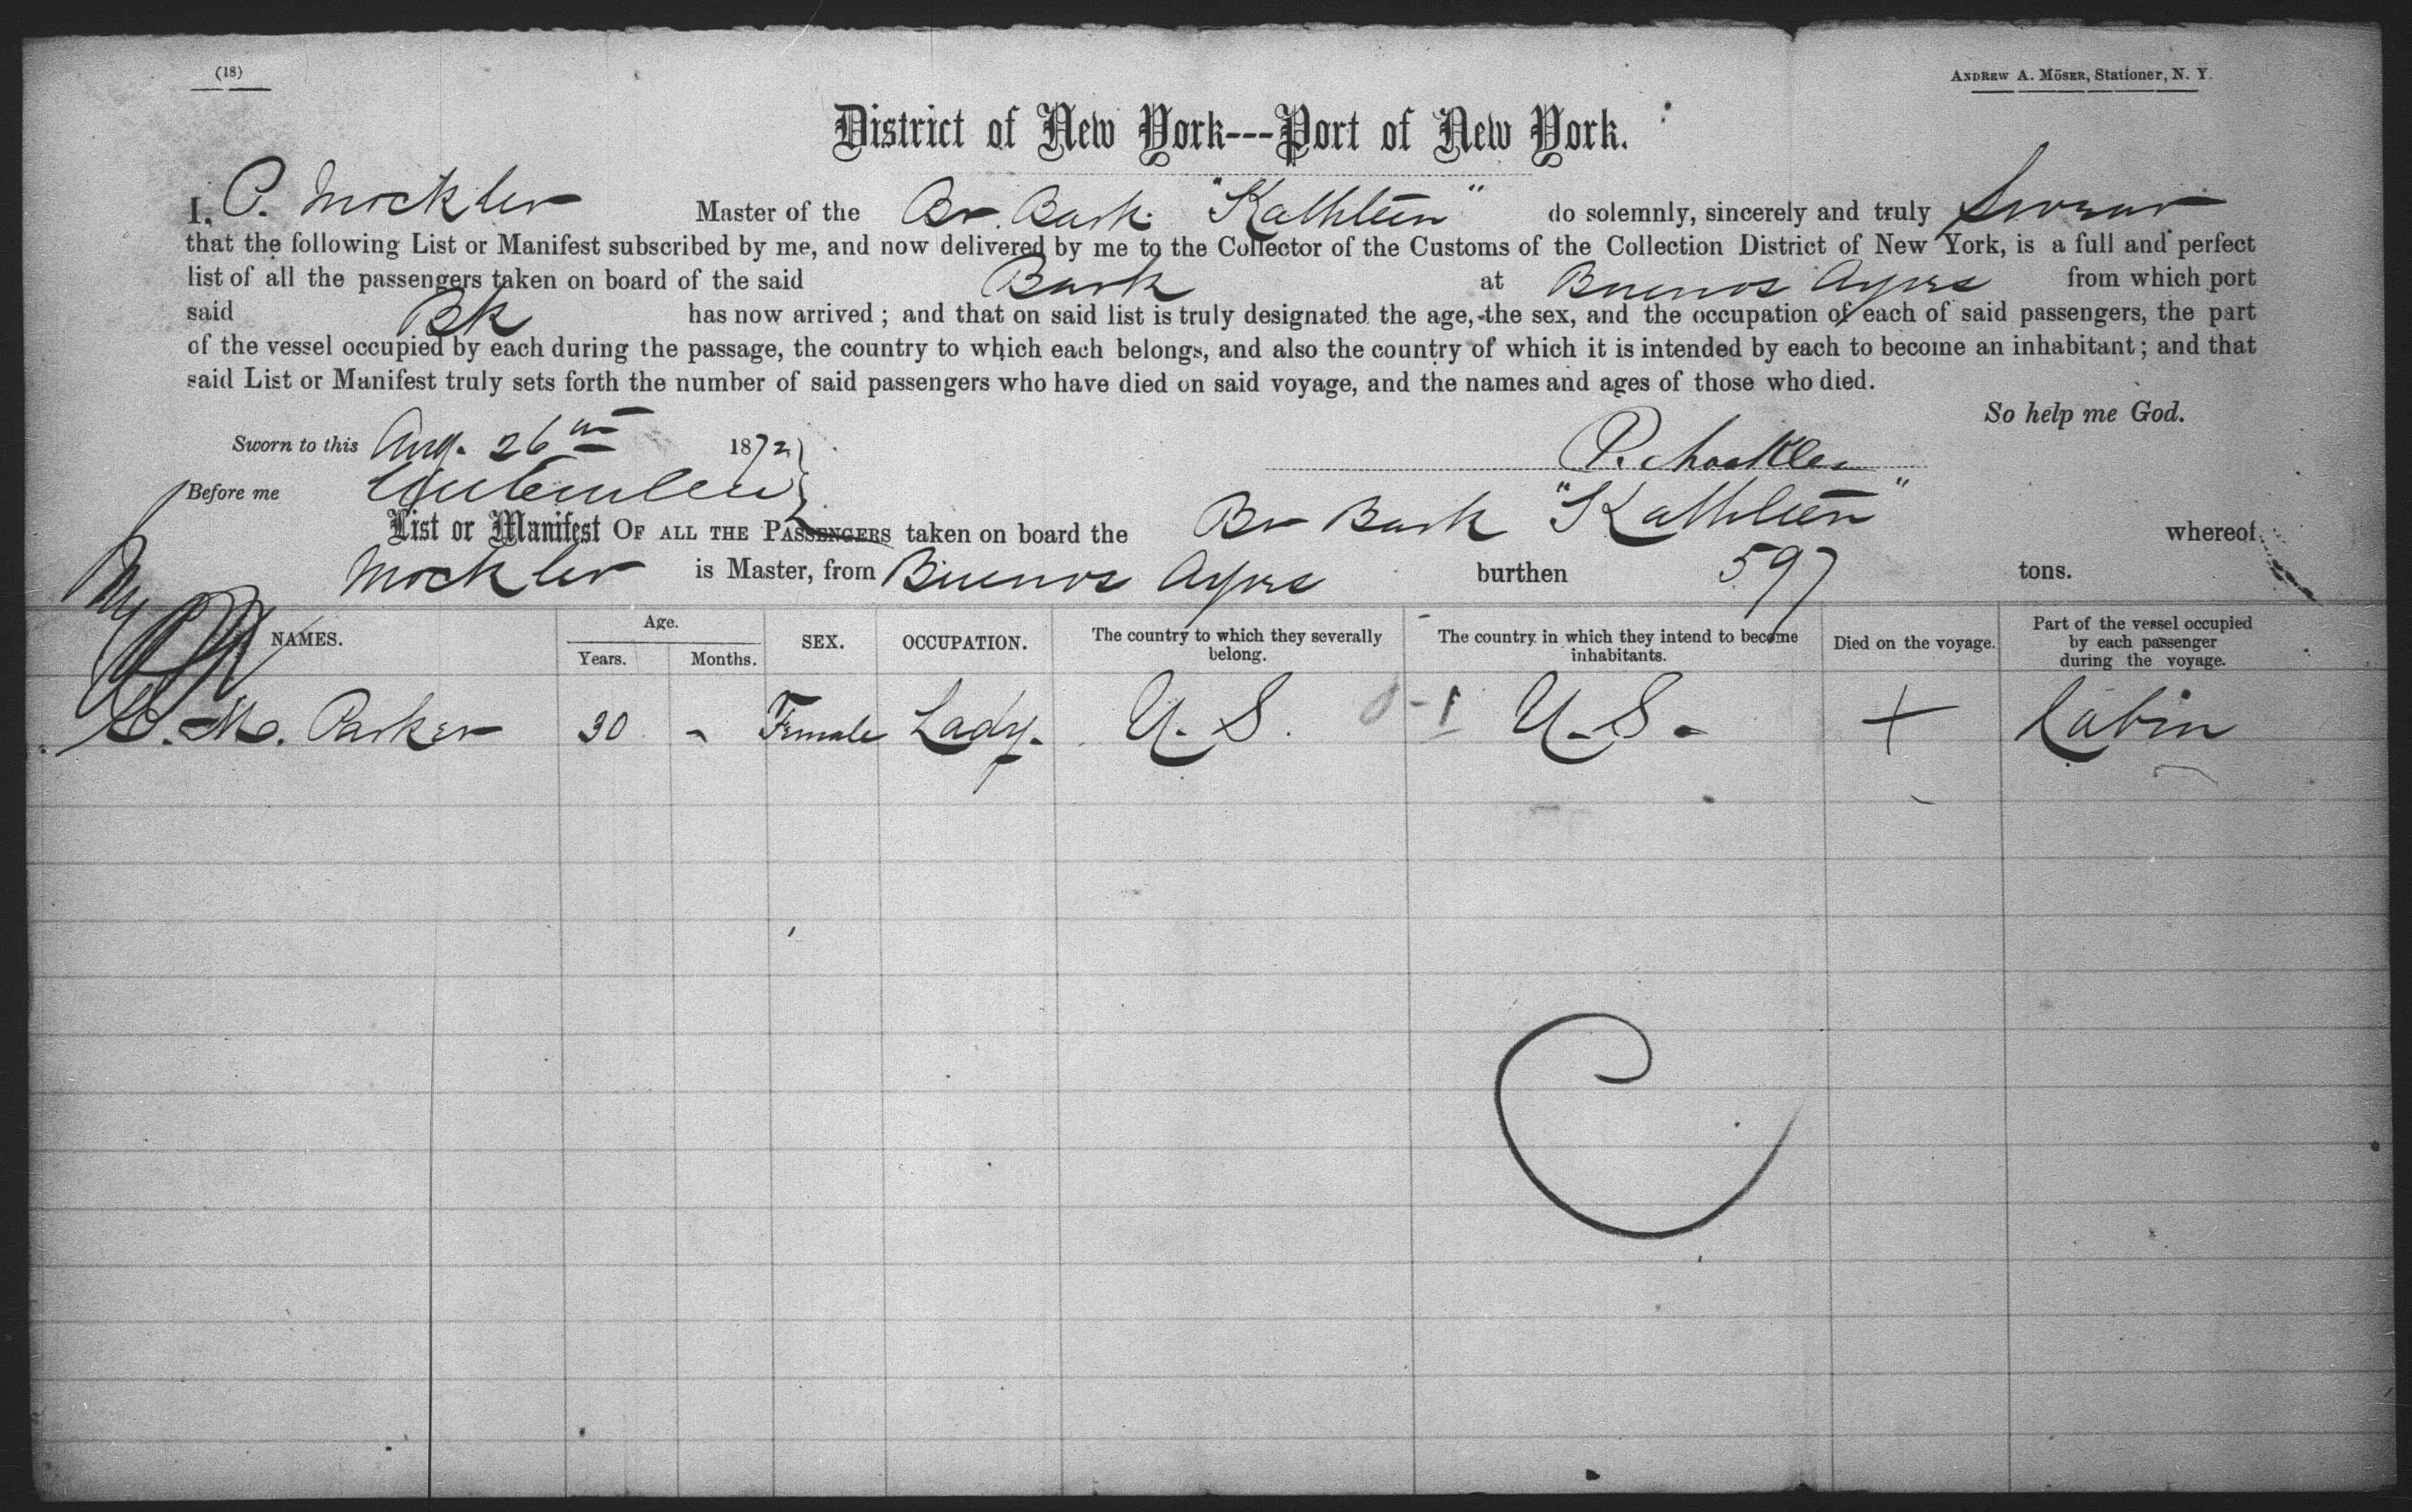 (18)
ANDREW A. MÖSER, Stationer, N. Y.
District of New York---Port of New York.
I, P. Mockler Master of the Br. Bark "Kathleen" do solemnly, sincerely and truly Swear
that the following List or Manifest subscribed by me, and now delivered by me to the Collector of the Customs of the Collection District of New York, is a full and perfect
list of all the passengers taken on board of the said Bark at Buenos Ayres from which port
said Bk has now arrived; and that on said list is truly designated the age, the sex, and the occupation of each of said passengers, the part
of the vessel occupied by each during the passage, the country to which each belongs, and also the country of which it is intended by each to become an inhabitant; and that
said List or Manifest truly sets forth the number of said passengers who have died on said voyage, and the names and ages of those who died.
So help me God.
Sworn to this Aug. 26th 1872
P. Mockler
Before me
List or Manifest OF ALL THE PASSENGERS taken on board the Br Bark "Kathleen" whereof
Mockler is Master, from Buenos Ayres burthen 597 tons.
NAMES. Age. Years. Months. SEX. OCCUPATION. The country to which they severally belong. The country in which they intend to become inhabitants. Died on the voyage. Part of the vessel occupied by each passenger during the voyage.
M. Parker 30 - Female Lady. U. S. U. S. + Cabin
C